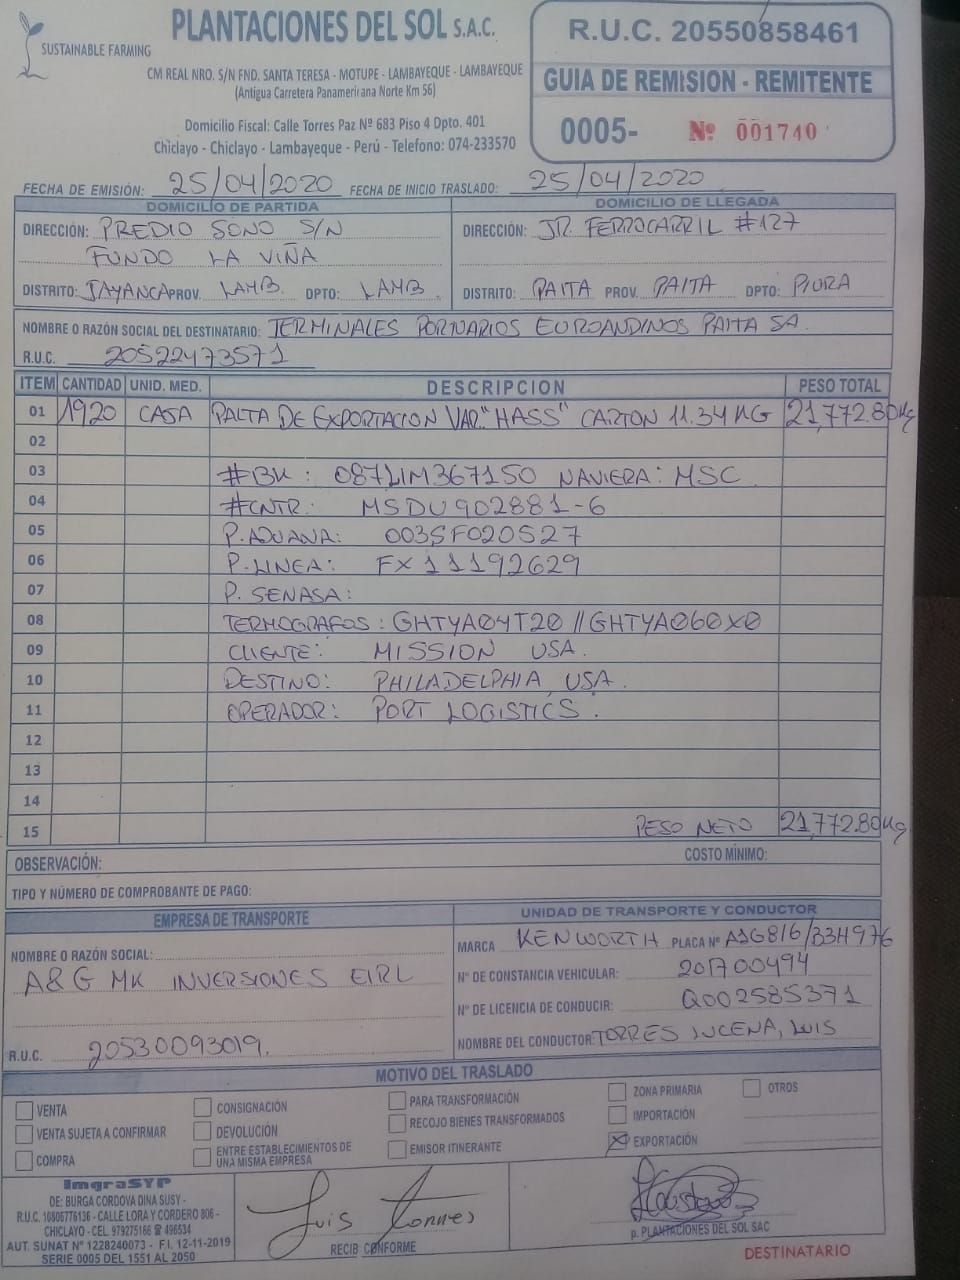 SUSTAINABLE FARMING
PLANTACIONES DEL SOL S.A.C.
CM REAL NRO. S/N FND. SANTA TERESA - MOTUPE - LAMBAYEQUE - LAMBAYEQUE
(Antigua Carretera Panamericana Norte Km 56)
Domicilio Fiscal: Calle Torres Paz Nº 683 Piso 4 Dpto. 401
Chiclayo - Chiclayo - Lambayeque - Perú - Telefono: 074-233570
R.U.C. 20550858461
GUIA DE REMISION - REMITENTE
0005- Nº 001740
FECHA DE EMISIÓN: 25/04/2020 FECHA DE INICIO TRASLADO: 25/04/2020
DOMICILIO DE PARTIDA
DIRECCIÓN: PREDIO SONO S/N
FUNDO LA VIÑA
DISTRITO: JAYANCA PROV. LAMB. DPTO: LAMB.
DOMICILIO DE LLEGADA
DIRECCIÓN: JR. FERROCARRIL #127
DISTRITO: PAITA PROV. PAITA DPTO: PIURA
NOMBRE O RAZÓN SOCIAL DEL DESTINATARIO: TERMINALES PORTUARIOS EUROANDINOS PAITA SA.
R.U.C. 20522473571
ITEM CANTIDAD UNID. MED. DESCRIPCION PESO TOTAL
01 1920 CAJA PALTA DE EXPORTACION VAR. "HASS" CARTON 11.34 KG 21,772.80Kg
02
03 #BK: 087LIM367150 NAVIERA: MSC
04 #CNTR: MSDU902881-6
05 P. ADUANA: 003SF020527
06 P. LINEA: FX11192629
07 P. SENASA:
08 TERMOGRAFOS: GHTYA04T20 // GHTYA060X0
09 CLIENTE: MISSION USA.
10 DESTINO: PHILADELPHIA, USA.
11 OPERADOR: PORT LOGISTICS.
12
13
14
15 PESO NETO 21,772.80Kg
OBSERVACIÓN: COSTO MÍNIMO:
TIPO Y NÚMERO DE COMPROBANTE DE PAGO:
EMPRESA DE TRANSPORTE
NOMBRE O RAZÓN SOCIAL:
A&G MK INVERSIONES EIRL
R.U.C. 20530093019.
UNIDAD DE TRANSPORTE Y CONDUCTOR
MARCA KENWORTH PLACA Nº A1G816/B3H976
Nº DE CONSTANCIA VEHICULAR: 201700494
Nº DE LICENCIA DE CONDUCIR: Q002585371
NOMBRE DEL CONDUCTOR: TORRES LUCENA, LUIS
MOTIVO DEL TRASLADO
VENTA
VENTA SUJETA A CONFIRMAR
COMPRA
CONSIGNACIÓN
DEVOLUCIÓN
ENTRE ESTABLECIMIENTOS DE
UNA MISMA EMPRESA
PARA TRANSFORMACIÓN
RECOJO BIENES TRANSFORMADOS
EMISOR ITINERANTE
ZONA PRIMARIA
IMPORTACIÓN
EXPORTACIÓN
OTROS
ImgraSYP
DE: BURGA CORDOVA DINA SUSY -
R.U.C. 10806776136 - CALLE LORA Y CORDERO 806 -
CHICLAYO - CEL. 979275166 ☎ 496534
AUT. SUNAT Nº 1228240073 - F.I. 12-11-2019
SERIE 0005 DEL 1551 AL 2050
Luis Torres
RECIB CONFORME
p. PLANTACIONES DEL SOL SAC
DESTINATARIO